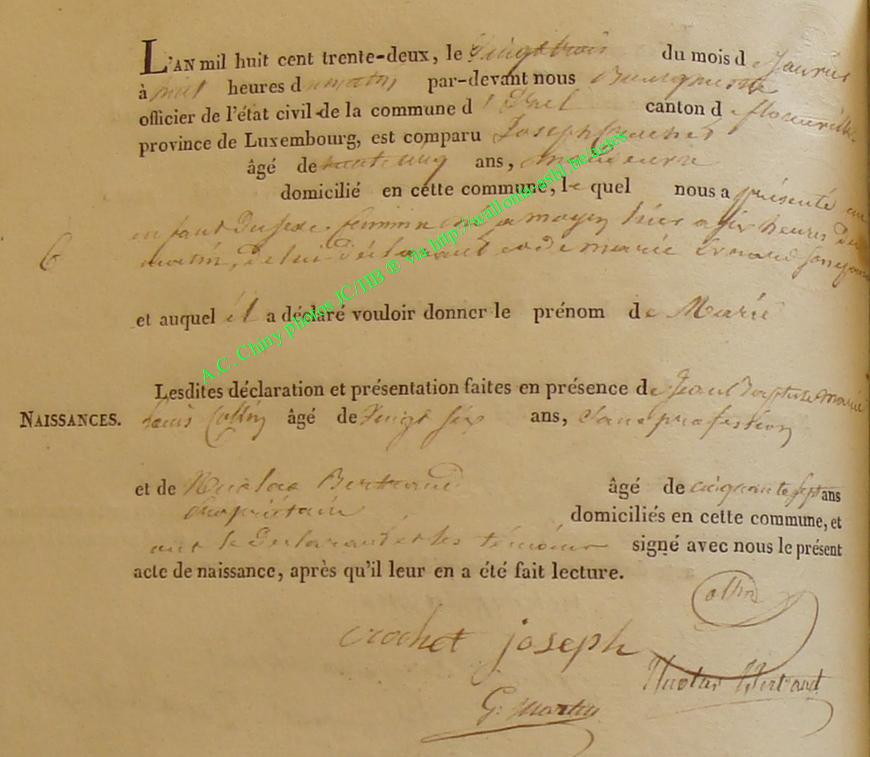 L'AN mil huit cent trente-deux, le Vingt trois du mois de Janvier
à huit heures du matin par-devant nous Bourguemestre
officier de l'état civil de la commune d'Izel canton de florenville
province de Luxembourg, est comparu Joseph Crochet
âgé de trente cinq ans, manoeuvre
domicilié en cette commune, le quel nous a présenté un
enfant du sexe feminin né a moyen hier a six heures du
6 matin, de lui déclarant et de marie Evrard son épouse
et auquel il a déclaré vouloir donner le prénom de Marie
Lesdites déclaration et présentation faites en présence de Jean Baptiste marie
NAISSANCES. Louis Collin âgé de Vingt six ans, Sans profession
et de Nicolas Bertrand âgé de cinquante sept ans
propriétaire domiciliés en cette commune, et
ont le Déclarant et les témoins signé avec nous le présent
acte de naissance, après qu'il leur en a été fait lecture.
Collin
crochet joseph
Nicolas Bertrand
G. Martin
A.C. Chiny photos JC/HB ® via http://wallonica.ashl.be/actes